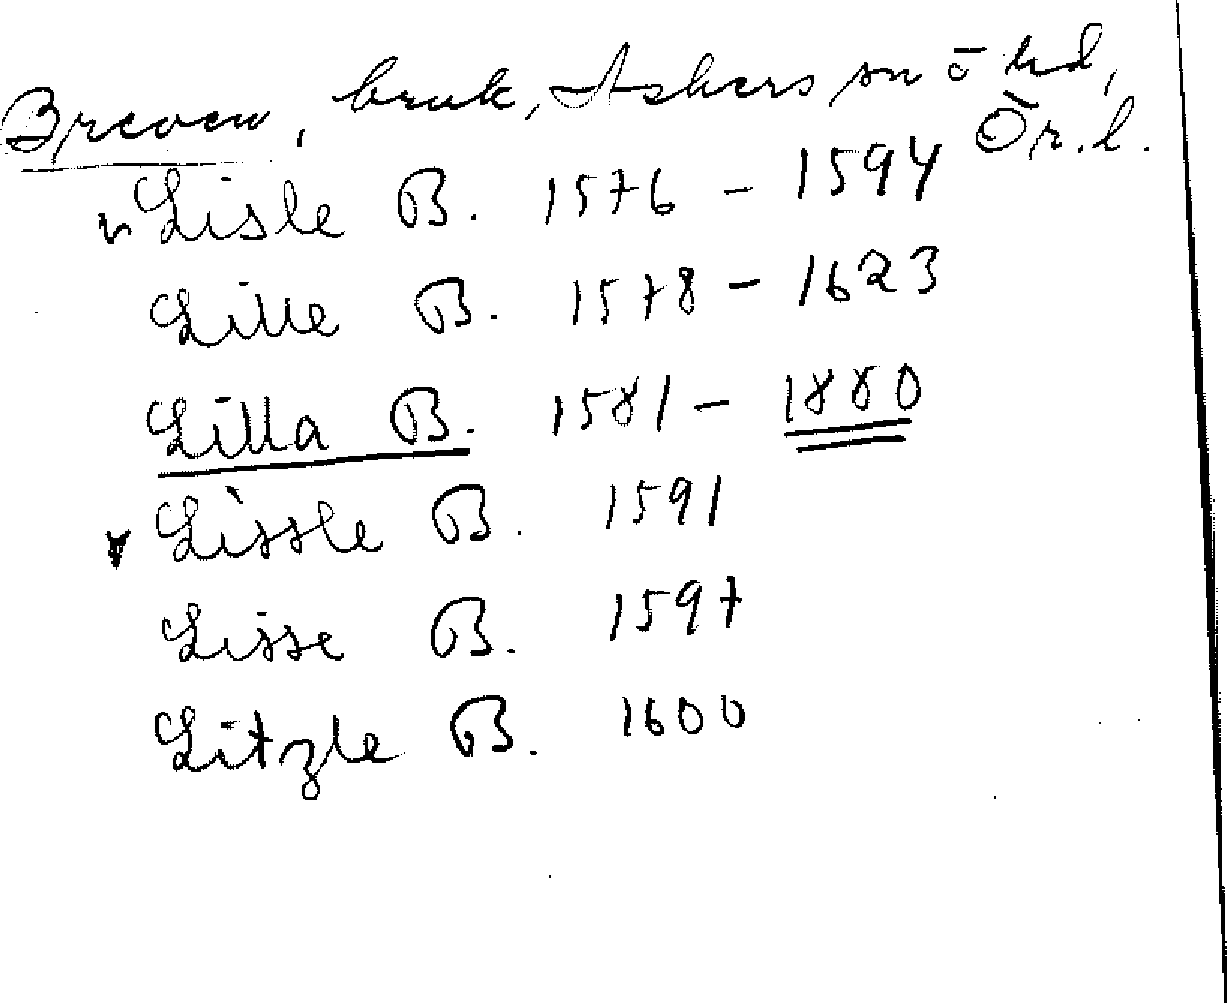 Breven, bruk, Askers sn ö hd,
Ör. l.
Lisle B. 1576 - 1594
Lille B. 1578 - 1623
Lilla B. 1581 - 1880
Lissle B. 1591
Lisse B. 1597
Litzle B. 1600